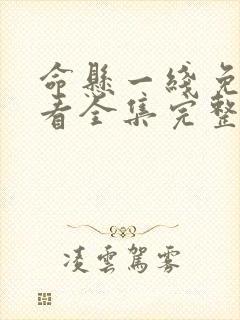 命懸一綫免
看全集完整
凌雲駕霧